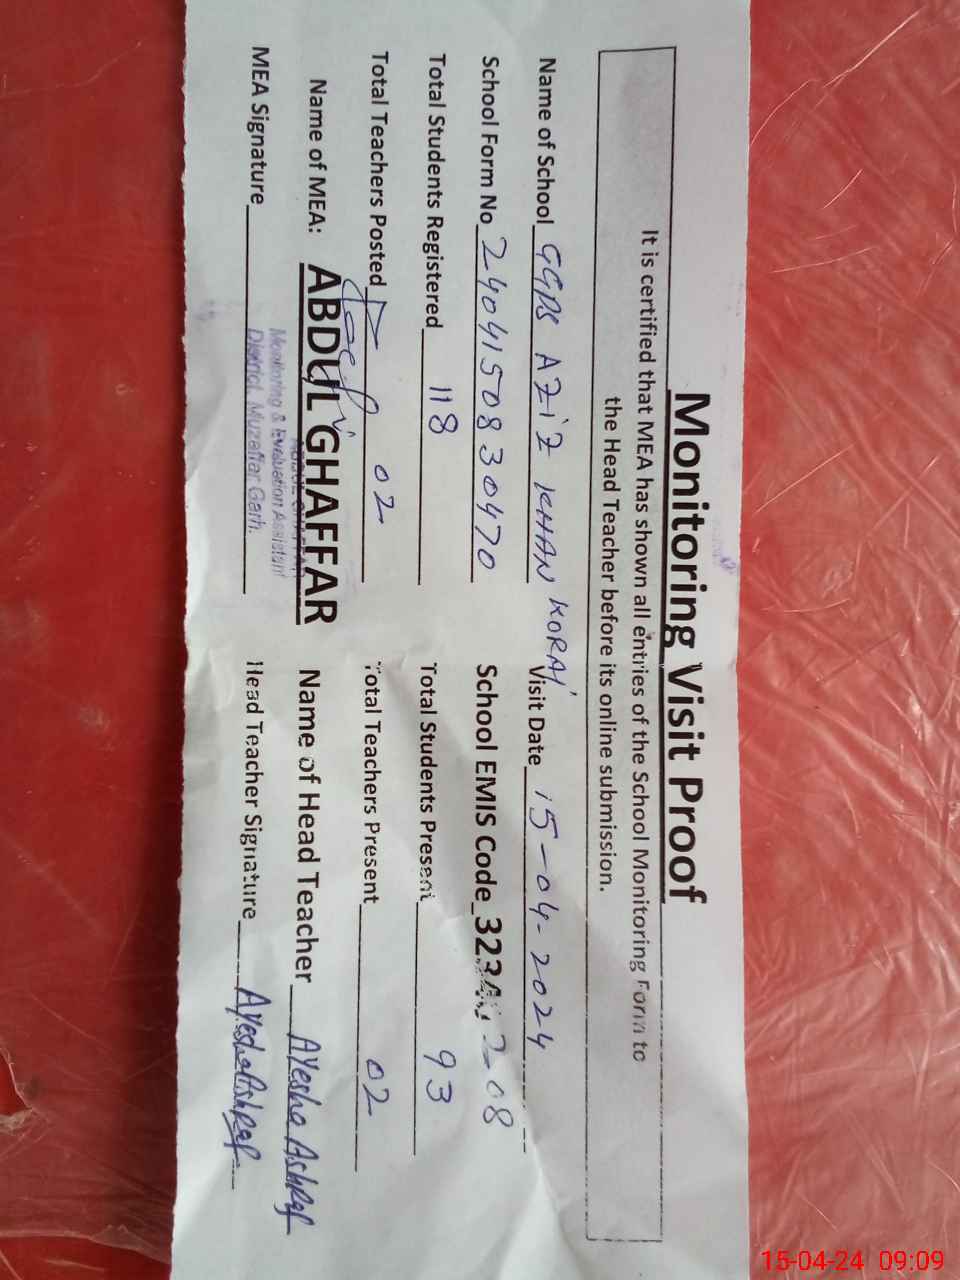 Monitoring Visit Proof
It is certified that MEA has shown all entries of the School Monitoring Form to
the Head Teacher before its online submission.
Name of School GGPS AZIZ KHAN KORAI Visit Date 15-04-2024
School Form No 2404150830470 School EMIS Code 323 08
Total Students Registered 118 Total Students Present 93
Total Teachers Posted 02 Total Teachers Present 02
Name of MEA: ABDUL GHAFFAR Name of Head Teacher AYesha AshRaf
ABDUL GHAFFAR
Monitoring & Evaluation Assistant
District Muzaffar Garh.
MEA Signature Head Teacher Signature AyeshaAshRaf
15-04-24 09:09